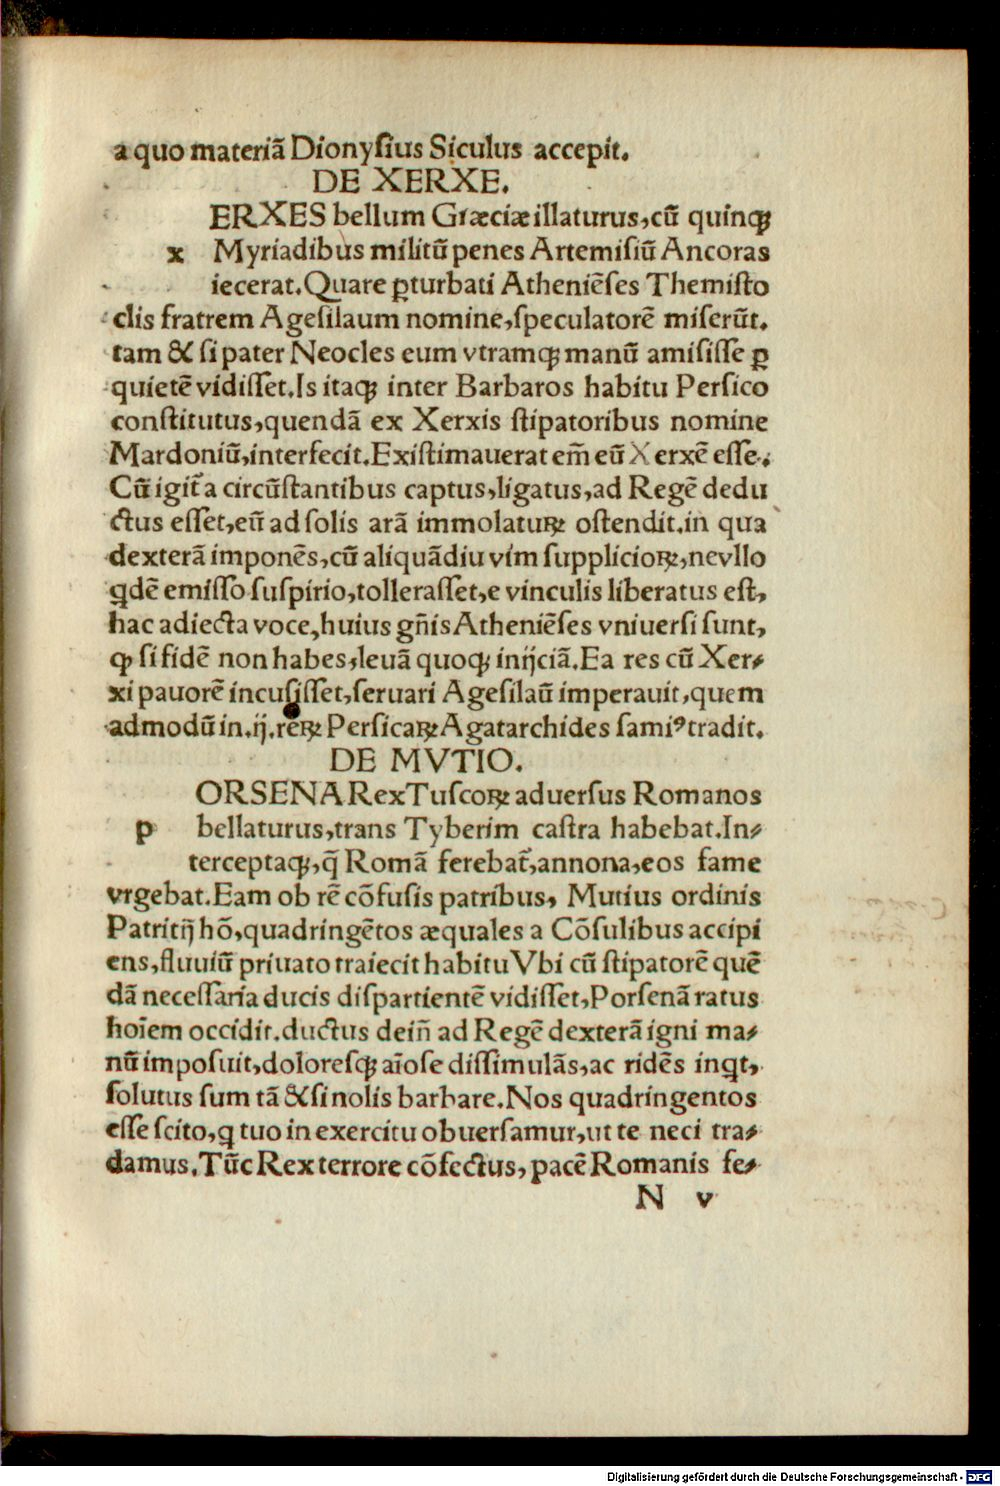 a quo materiā Dionyſius Siculus accepit.
DE XERXE.
ERXES bellum Græciæ illaturus, cū quinqꝫ
x Myriadibus militū penes Artemiſiū Ancoras
iecerat. Quare ꝑturbati Atheniēſes Themiſto
clis fratrem Ageſilaum nomine, ſpeculatorē miſerūt.
tam & ſi pater Neocles eum vtramqꝫ manū amiſiſſe ꝑ
quietē vidiſſet. Is itaqꝫ inter Barbaros habitu Perſico
conſtitutus, quendā ex Xerxis ſtipatoribus nomine
Mardoniū, interfecit. Exiſtimauerat em̄ eū Xerxē eſſe.
Cū igit̄ a circūſtantibus captus, ligatus, ad Regē dedu
ctus eſſet, eū ad ſolis arā immolatuꝝ oſtendit. in qua
dexterā imponēs, cū aliquādiu vim ſupplicioꝝ, ne vllo
qͥdē emiſſo ſuſpirio, tolleraſſet, e vinculis liberatus eſt,
hac adiecta voce, huius gn̄is Atheniēſes vniuerſi ſunt,
ꝙ ſi fidē non habes, leuā quoqꝫ inijciā. Ea res cū Xer⸗
xi pauorē incuſiſſet, ſeruari Ageſilaū imperauit, quem
admodū in .ij. reꝝ Perſicaꝝ Agatarchides ſamiꝰ tradit.
DE MVTIO.
ORSENA Rex Tuſcoꝝ aduerſus Romanos
p bellaturus, trans Tyberim caſtra habebat. In⸗
terceptaqꝫ, q̄ Romā ferebat̄, annona, eos fame
vrgebat. Eam ob rē cōfuſis patribus, Mutius ordinis
Patritij hō, quadringētos æquales a Cōſulibus accipi
ens, fluuiū priuato traiecit habitu Vbi cū ſtipatorē quē
dā neceſſaria ducis diſpartientē vidiſſet, Porſenā ratus
hoīem occidit. ductus dein̄ ad Regē dexterā igni ma⸗
nū impoſuit, doloreſqꝫ aīoſe diſſimulās, ac ridēs inqͥt,
ſolutus ſum tā & ſi nolis barbare. Nos quadringentos
eſſe ſcito, qͥ tuo in exercitu obuerſamur, ut te neci tra⸗
damus. Tūc Rex terrore cōfectus, pacē Romanis fe⸗
N v
Digitalisierung gefördert durch die Deutsche Forschungsgemeinschaft - DFG